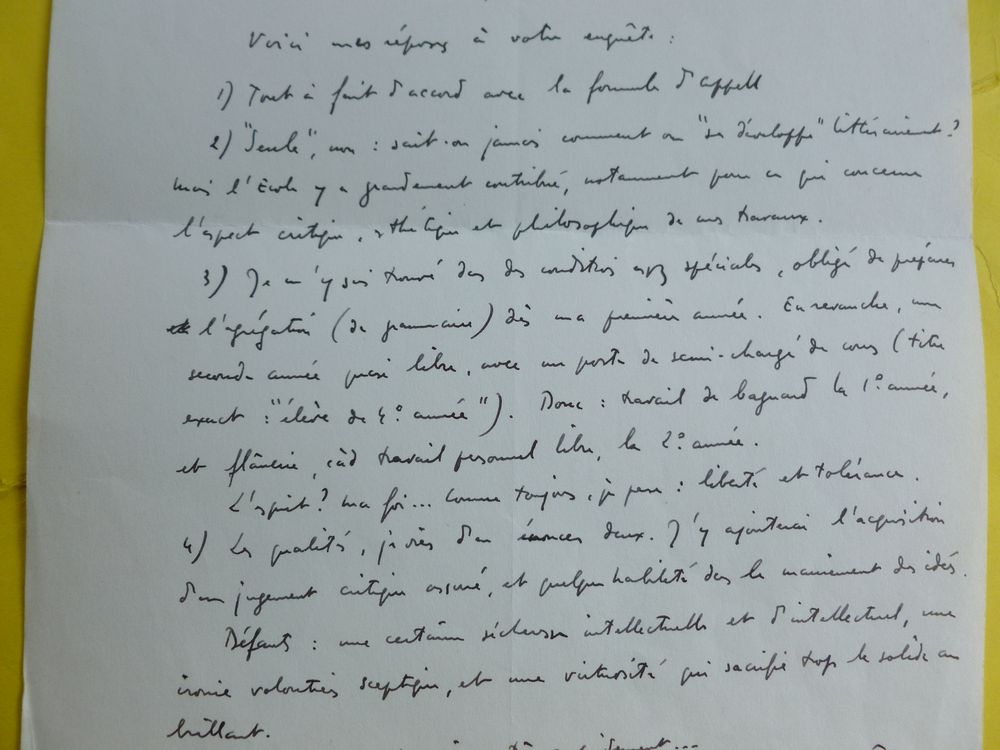 Voici mes réponses à votre enquête :
1) Tout à fait d'accord avec la formule d'appell
2) "Seule", non : sait-on jamais comment on "se développe" littérairement ?
mais l'Ecole y a grandement contribué, notamment pour ce qui concerne
l'aspect critique, esthétique et philosophique de mes travaux.
3) Je m'y suis trouvé dans des conditions assez spéciales, obligé de préparer
l'agrégation (de grammaire) dès ma première année. En revanche, une
seconde année quasi libre, avec un poste de semi-chargé de cours (titre
exact : "élève de 4° année"). Donc : travail de bagnard la 1° année,
et flânerie, càd travail personnel libre, la 2° année.
L'esprit ? ma foi... comme toujours, je pense : liberté et tolérance.
4) Les qualités, je viens d'en énoncer deux. J'y ajouterai l'acquisition
d'un jugement critique assuré, et quelque habileté dans le maniement des idées.
Défauts : une certaine sécheresse intellectuelle et d'intellectuel, une
ironie volontiers sceptique, et une virtuosité qui sacrifie trop le solide au
brillant.